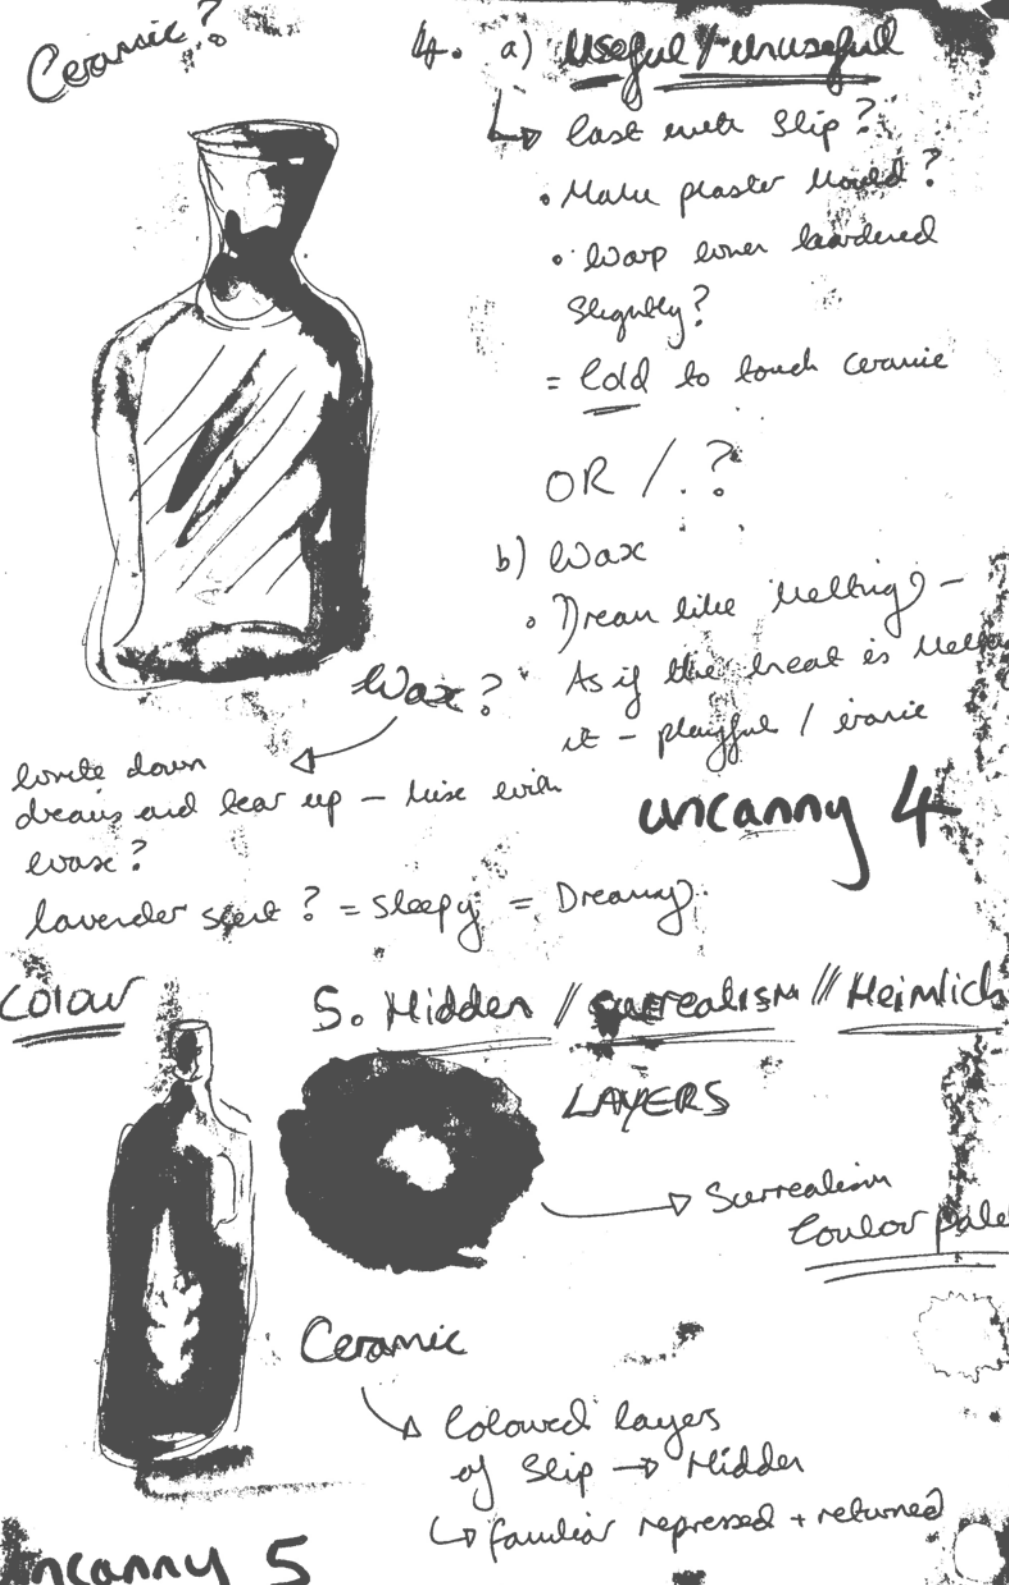 Ceramic?
4. a) Useful / unuseful
Cast with Slip?
• Make plaster Mould?
• Warp when hardened
slightly?
= Cold to touch ceramic
OR / . ?
b) Wax
• Dream like Melting –
As if the heat is Melting
it – playful / ironic
Wax?
write down
dreams and tear up – Mix with
wax?
lavender scent? = Sleepy = Dreamy
uncanny 4
Colour
5. Hidden // Surrealism /// Heimlich
LAYERS
Surrealism
Coulor pale
Ceramic
Coloured layers
of Slip → Hidden
familiar repressed + returned
uncanny 5